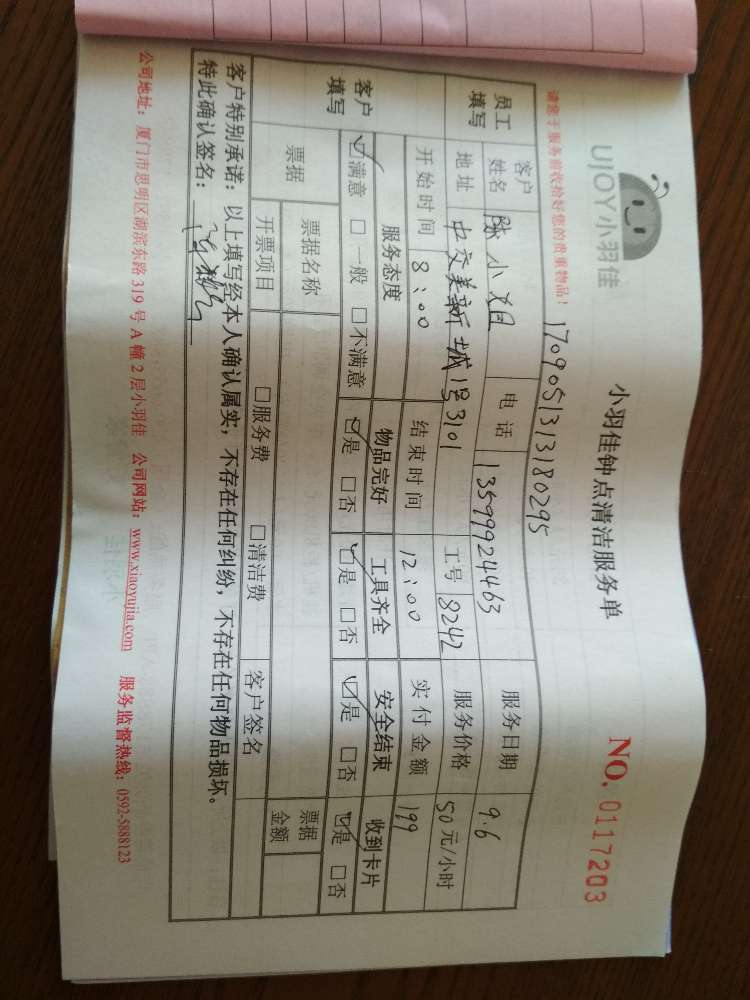 UJOY小羽佳
小羽佳钟点清洁服务单
NO. 0117203
请您于服务前收拾好您的贵重物品！
1709051313180295
员工填写 客户姓名 陈小姐 电话 13599924463 服务日期 9.6
地址 中交美新城1号3101 工号 8242 服务价格 50元/小时
客户填写 开始时间 8:00 结束时间 12:00 实付金额 199
服务态度 物品完好 工具齐全 安全结束 收到卡片
☑满意 □一般 □不满意 ☑是 □否 ☑是 □否 ☑是 □否 ☑是 □否
票据 票据名称 票据金额
开票项目 □服务费 □清洁费 客户签名
客户特别承诺：以上填写经本人确认属实，不存在任何纠纷，不存在任何物品损坏。
特此确认签名：
公司地址：厦门市思明区湖滨东路 319 号 A 幢 2 层小羽佳 公司网站：www.xiaoyujia.com 服务监督热线：0592-5888123